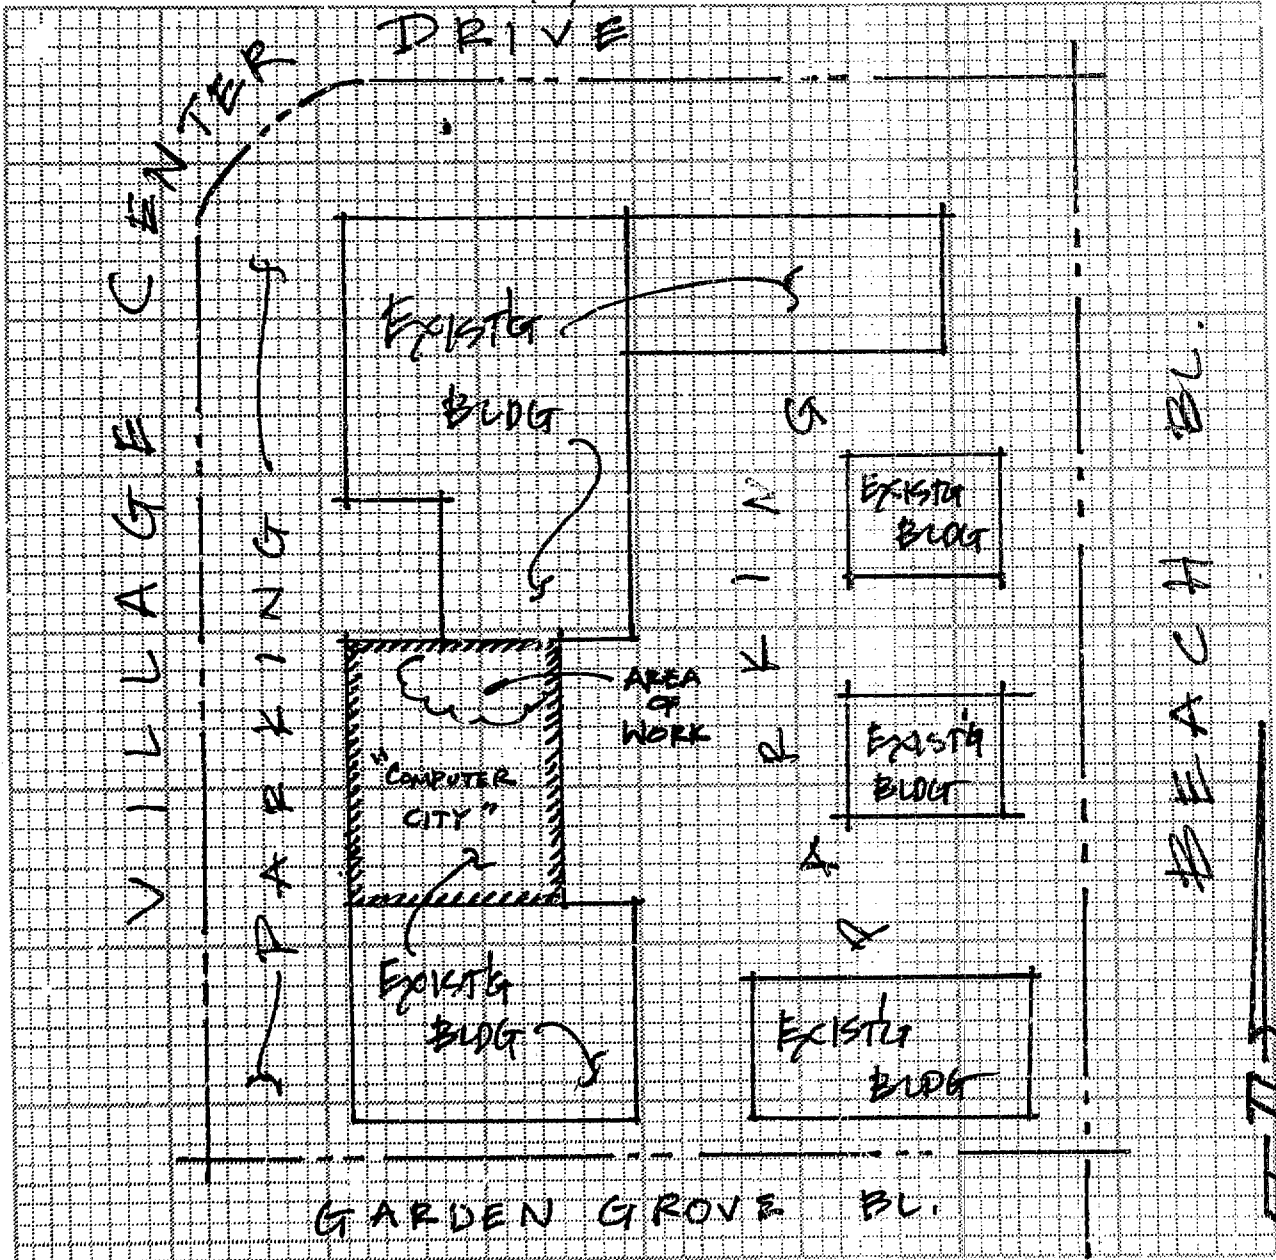 VILLAGE CENTER DRIVE
EXIST'G
BLDG
PARKING
PARKING
EXIST'G
BLDG
BEACH BL.
AREA
OF
WORK
"COMPUTER
CITY"
EXIST'G
BLDG
EXIST'G
BLDG
EXIST'G
BLDG
GARDEN GROVE BL.